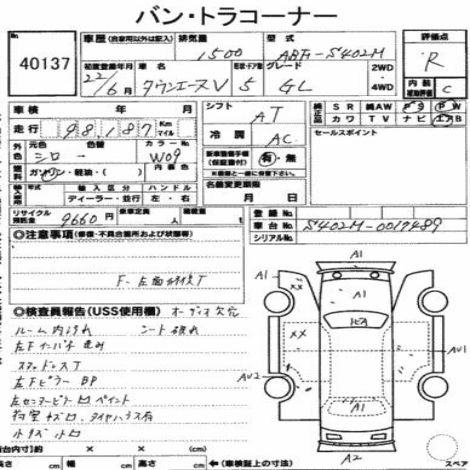 バン・トラコーナー
No. 40137
車歴 (自家用以外は記入) 排気量 1500 型式 ABF-S402M 評価点 R
初度登録年月 22/6月 車名 タウンエースV 形状・ドア数 5 グレード GL 2WD 4WD 内装 補助評価 C
車検 年 月 シフト AT SR 純AW PS PW
走行 98187 Km マイル 冷房 AC カワ TV ナビ エアB
外色 元色 シロー 色替 カラーNo. W09 セールスポイント
燃料 ガソリン・軽油・( ) 内装色 新車整備手帳 (保証書付) 有・無
輸入区分 ハンドル ※書類と一緒に保管して下さい。
ディーラー・並行 左・右 名義変更期限 月 日
リサイクル預託金 9660円 乗車定員 人 積載量 登録No.
車台No. S402M-0017489
シリアルNo.
○注意事項 (修復・不具合箇所および状態等)
F-左面修復T
○検査員報告 (USS使用欄) オーディオ欠品
ルーム内汚れ シート破れ
左Fインパネ
左Fピラー BP
左センターピラーロ ペイント
荷室キズロ、タイヤハウス有
小キズ小凹
荷台内寸) 長さ (cm) × 幅 (cm) × 高さ (cm) ← (車検証上の寸法) スペア
A1
A1
A1
XX
ヒビA
XX
AU2
AU2
C1
A1
A2